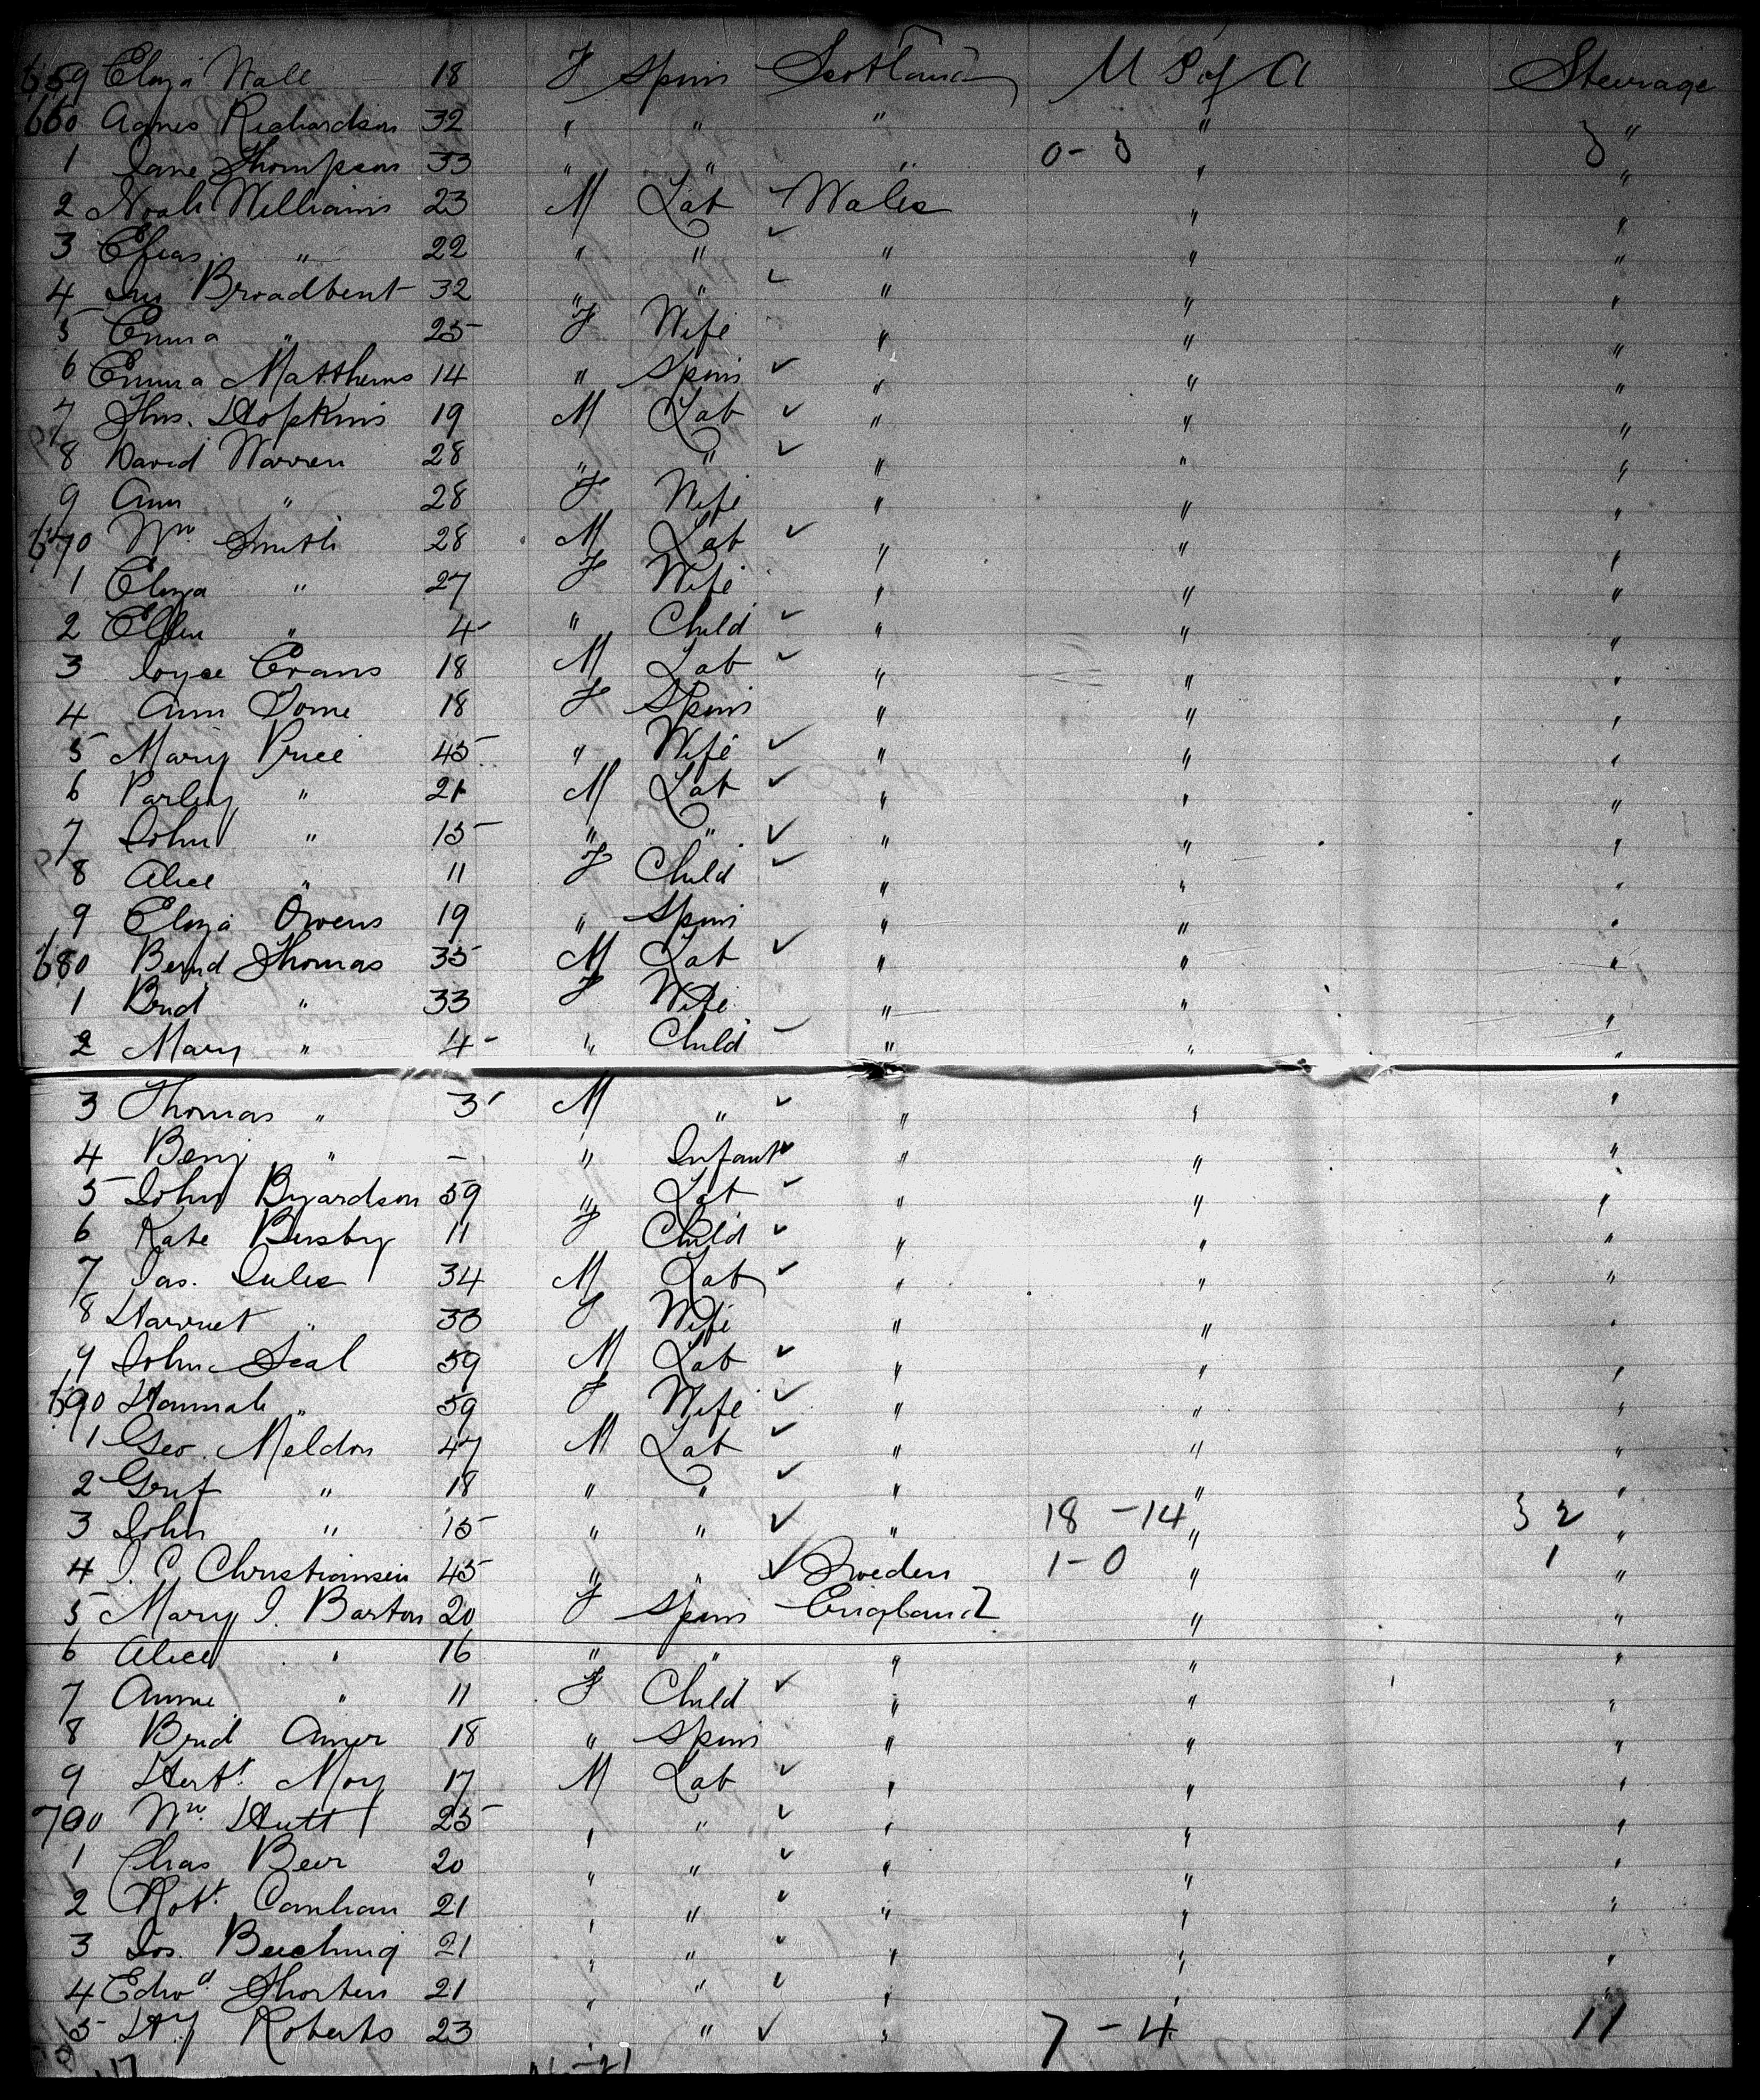 659 Eliza Wall 18 F Spins Scotland U S of A Steerage
660 Agnes Richardson 32 " " " " "
0-3 3
1 Jane Thompson 33 " " " " "
2 Noah Williams 23 M Lab Wales " "
3 Elias " 22 " " " " "
4 Broadbent 32 " " " " "
5 Emma " 25 F Wife " " "
6 Emma Matthews 14 " Spins " " "
7 Thos. Hopkins 19 M Lab " " "
8 David Warren 28 " " " " "
9 Ann " 28 F Wife " " "
670 Wm Smith 28 M Lab " " "
1 Eliza " 27 F Wife " " "
2 Ellen " 4 " Child " " "
3 Joyce Evans 18 M Lab " " "
4 Ann 18 F Spins " " "
5 Mary Price 45 " Wife " " "
6 Parley " 21 M Lab " " "
7 John " 15 " " " " "
8 Alice " 11 F Child " " "
9 Eliza Owens 19 " Spins " " "
680 Bernd Thomas 35 M Lab " " "
1 Brid " 33 F Wife " " "
2 Mary " 4 " Child " " "
3 Thomas " 3 M " " " "
4 Benj " - " Infant " " "
5 John Byardson 59 " Lab " " "
6 Kate Busby 11 F Child " " "
7 Jas. Jules 34 M Lab " " "
8 Harriet " 33 F Wife " " "
9 John Seal 59 M Lab " " "
690 Hannah " 59 F Wife " " "
1 Geo. Meldon 47 M Lab " " "
2 " 18 " " " " "
3 John " 15 " " " 18-14 " 32 "
4 J. C. Christiansen 45 " " Sweden 1-0 " 1 "
5 Mary J. Barton 20 F Spins England " "
6 Alice " 16 " " " " "
7 Annie " 11 F Child " " "
8 Brid 18 " Spins " " "
9 Herbt. Moy 17 M Lab " " "
700 Wm. Hutt 25 " " " " "
1 Chas Beer 20 " " " " "
2 Robt. Canham 21 " " " " "
3 Jos. Beeching 21 " " " " "
4 Edwd Shorten 21 " " " " "
5 Hy Roberts 23 " " " 7-4 11